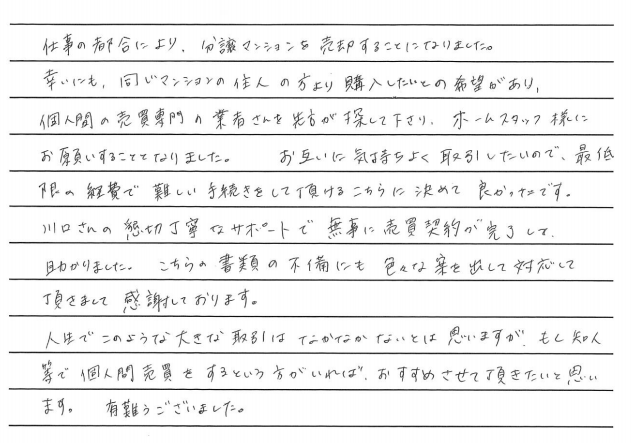 仕事の都合により、分譲マンションを売却することになりました。
幸いにも、同じマンションの住人の方より購入したいとの希望があり、
個人間の売買専門の業者さんを先方が探して下さり、ホームスタッフ様に
お願いすることとなりました。 お互いに気持ちよく取引したいので、最低
限の経費で難しい手続きをして頂けるこちらに決めて良かったです。
川口さんの懇切丁寧なサポートで無事に売買契約が完了して、
助かりました。 こちらの書類の不備にも色々な案を出して対応して
頂きまして感謝しております。
人生でこのような大きな取引はなかなかないとは思いますが、もし知人
等で個人間売買をするという方がいれば、おすすめさせて頂きたいと思い
ます。 有難うございました。